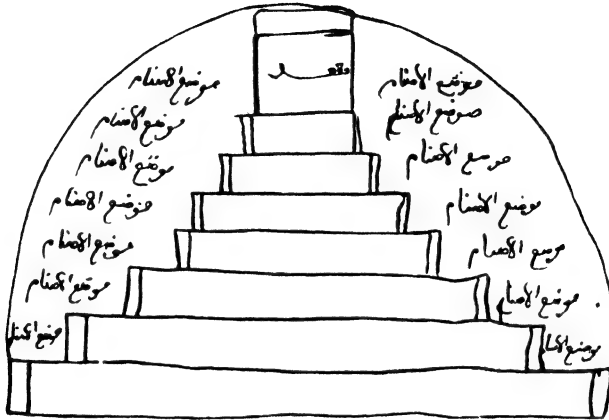 موضع الأصنام
مقعد
موضع الأصنام
موضع الأصنام
موضع الأصنام
موضع الأصنام
موضع الأصنام
موضع الأصنام
موضع الأصنام
موضع الأصنام
موضع الأصنام
موضع الأصنام
موضع الأصنام
موضع الأصنام
موضع الأصنام